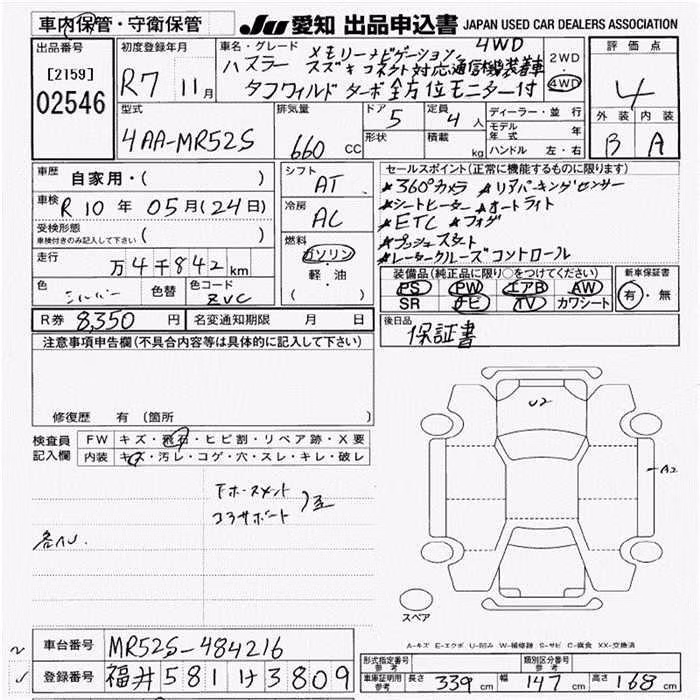 車内保管・守衛保管
JU 愛知 出品申込書 JAPAN USED CAR DEALERS ASSOCIATION
出品番号
[2159]
02546
初度登録年月
R7 11月
車名・グレード
メモリーナビゲーション 4WD
ハスラー スズキコネクト対応通信機装着車
タフワイルド ターボ 全方位モニター付
2WD
・
4WD
評価点
4
外装 内装
B A
型式
4AA-MR52S
排気量
660 CC
ドア 5
形状
定員 4 人
積載 kg
ディーラー・並行
モデル年式 年
ハンドル 左・右
車歴
自家用・( )
車検
R 10 年 05月(24日)
受検形態
車検付きのみ記入して下さい ( )
走行
万4千842km
色 シルバー 色替 色コード ZVC
シフト
AT
冷房
AC
燃料
ガソリン
・
軽・油
( )
セールスポイント(正常に機能するものに限ります)
*360°カメラ *リアパーキングセンサー
*シートヒーター *オートライト
*ETC *フォグ
*プッシュスタート
*レータークルーズコントロール
装備品(純正品に限り○をつけてください)
PS PW エアB AW
SR ナビ TV カワシート
新車保証書
有・無
R券 8,350 円 名変通知期限 月 日
後日品
保証書
注意事項申告欄(不具合内容等は具体的に記入して下さい)
修復歴 有 (箇所
検査員
記入欄
FW キズ・飛石・ヒビ割・リペア跡・X要
内装 キズ・汚レ・コゲ・穴・スレ・キレ・破レ
コアサポート
U2
A2
スペア
A-キズ E-エクボ U-凹み W-補修跡 S-サビ C-腐食 XX-交換済
車台番号 MR52S-484216
登録番号 福井 581 け 3809
形式指定番号 参考
類別区分番号 参考
車庫証明用 参考 長さ 339 cm 幅 147 cm 高さ 168 cm